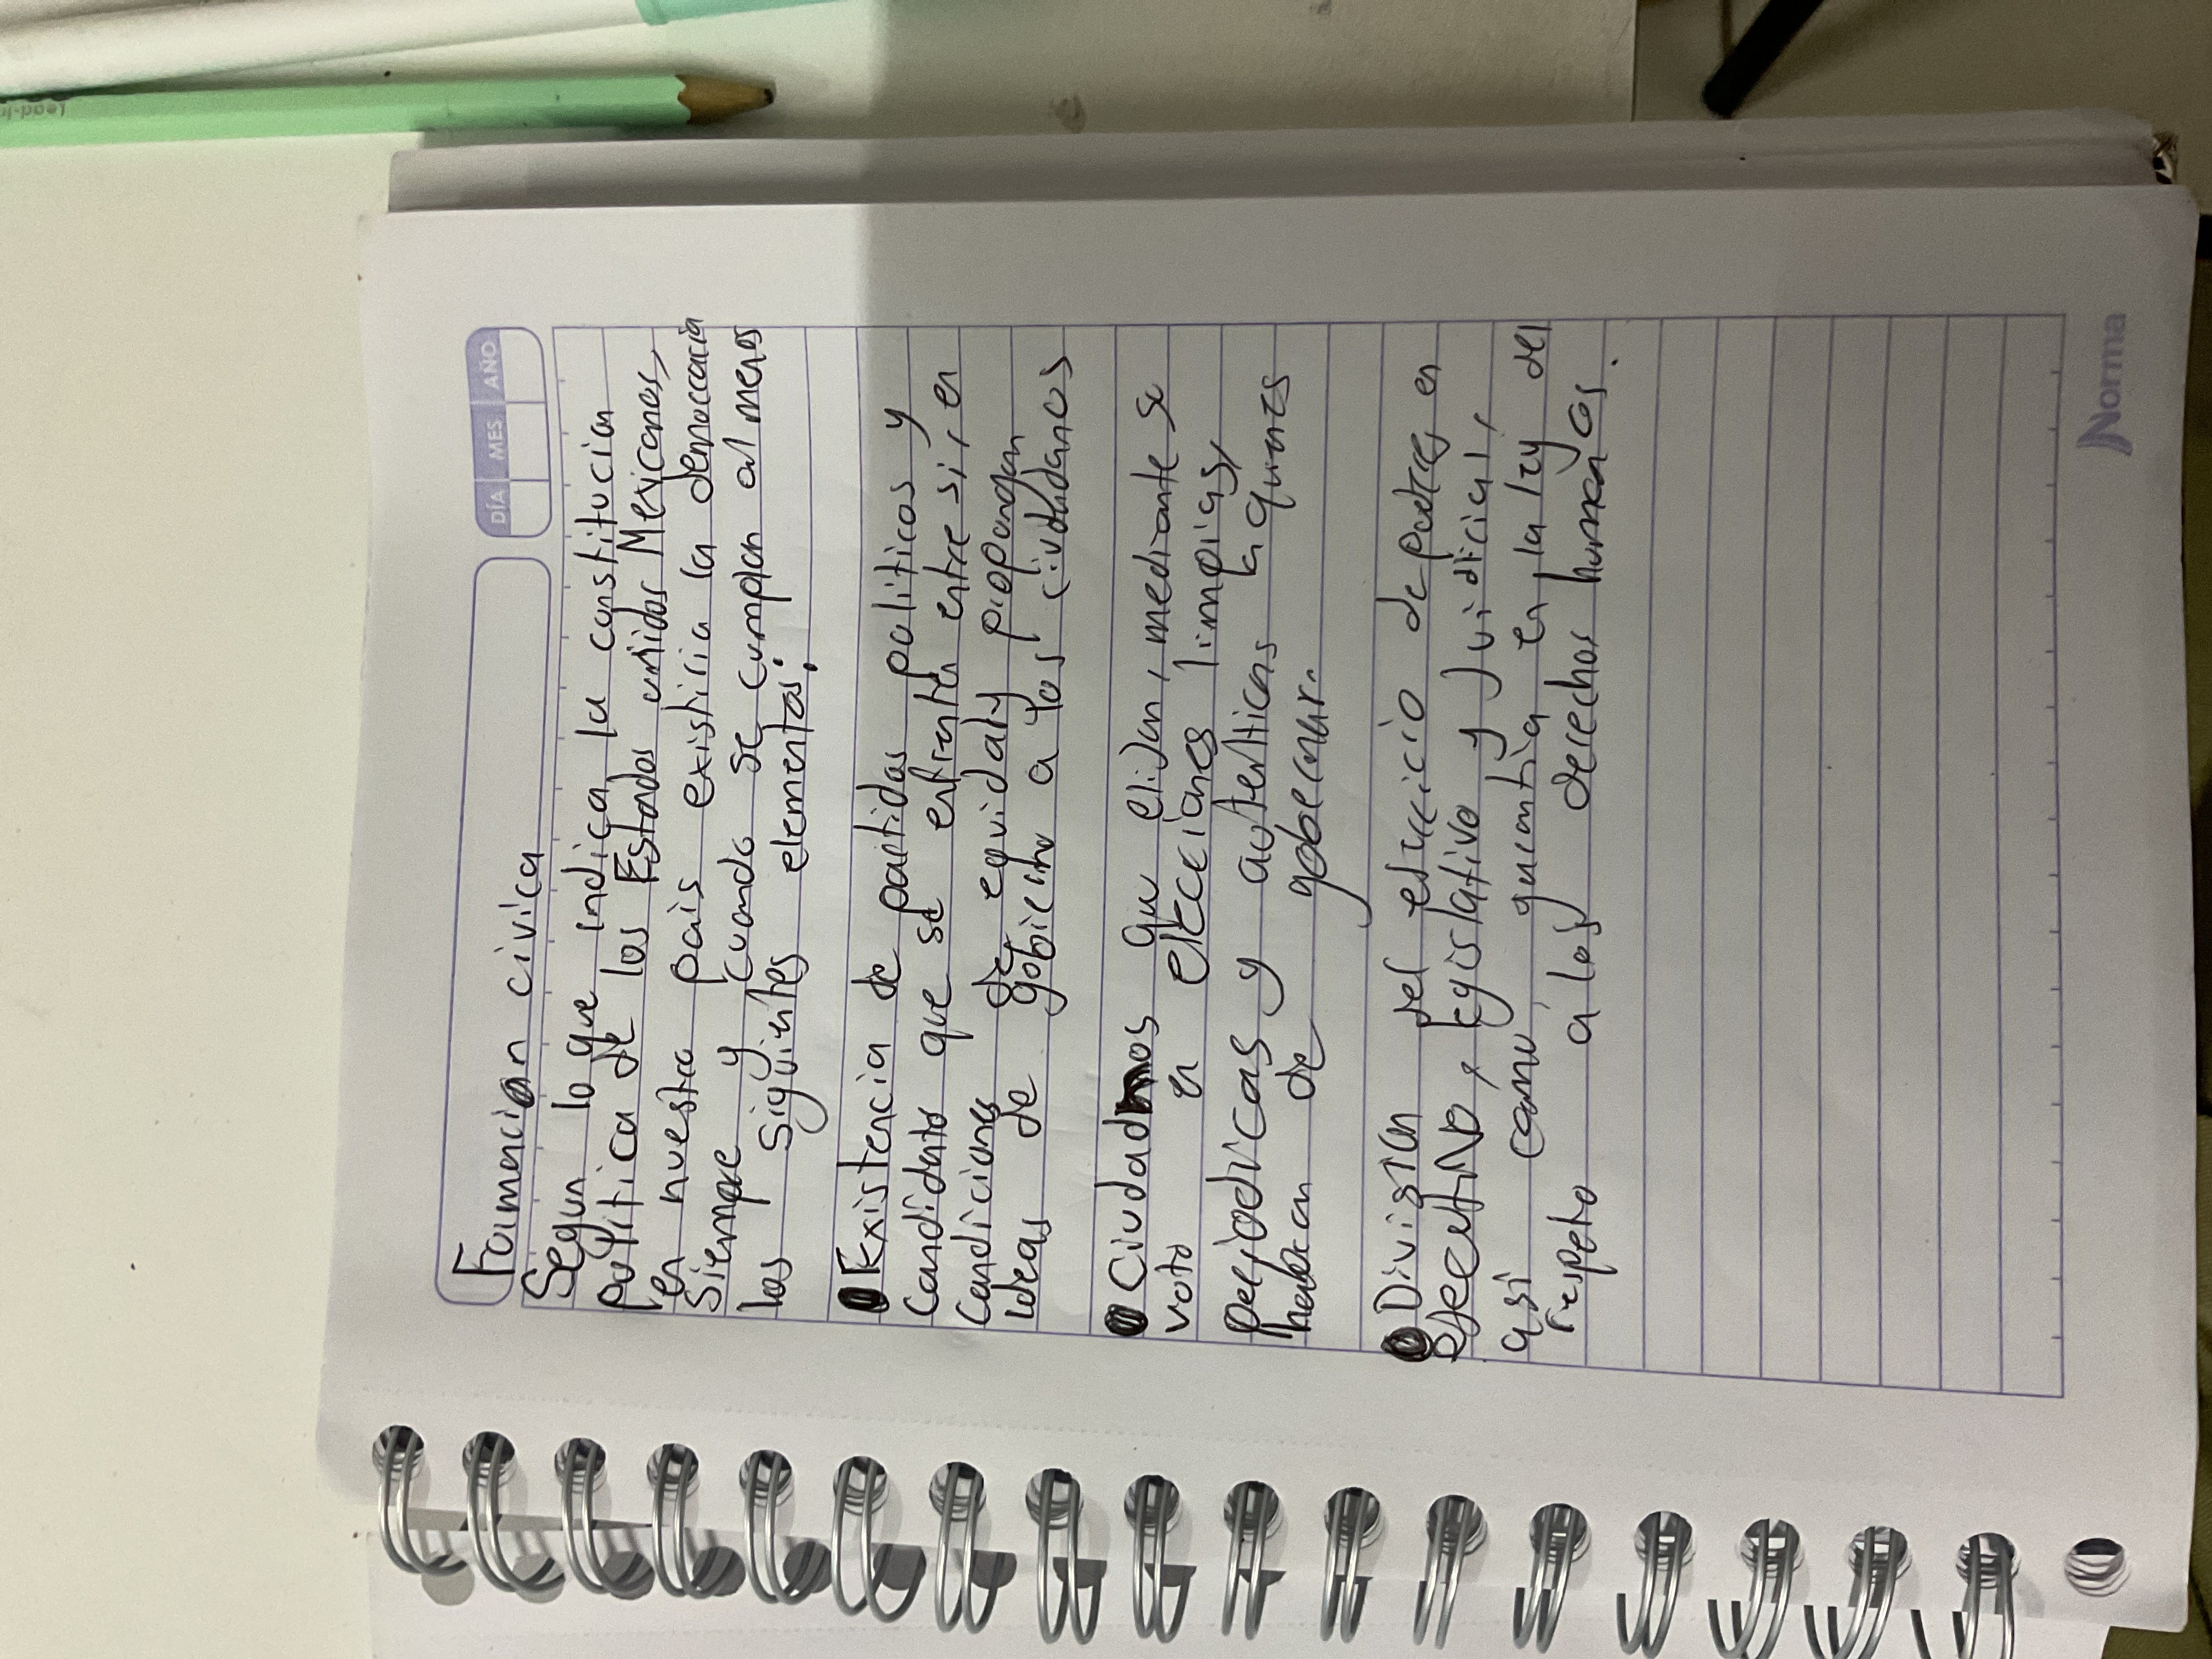 DÍA MES AÑO
Formación civica
Segun lo que indica la constitucion
politica de los Estados unidos Mexicanos,
en nuestro pais existiria la democracia
Siempre y cuando se cumplan al menos
los siguientes elementos:
Existencia de partidos politicos y
candidatos que se enfrenten entre si, en
condiciones de equidad y propongan
ideas de gobierno a los ciudadanos
Ciudadanos que elijan, mediante su
voto en elecciones limpias,
periodicas y autenticas a quienes
habran de gobernar.
División del ejercicio de poderes en
Ejecutivo, legislativo y Judicial,
asi como garantia en la ley del
respeto a los derechos humanos.
Norma
Lead-